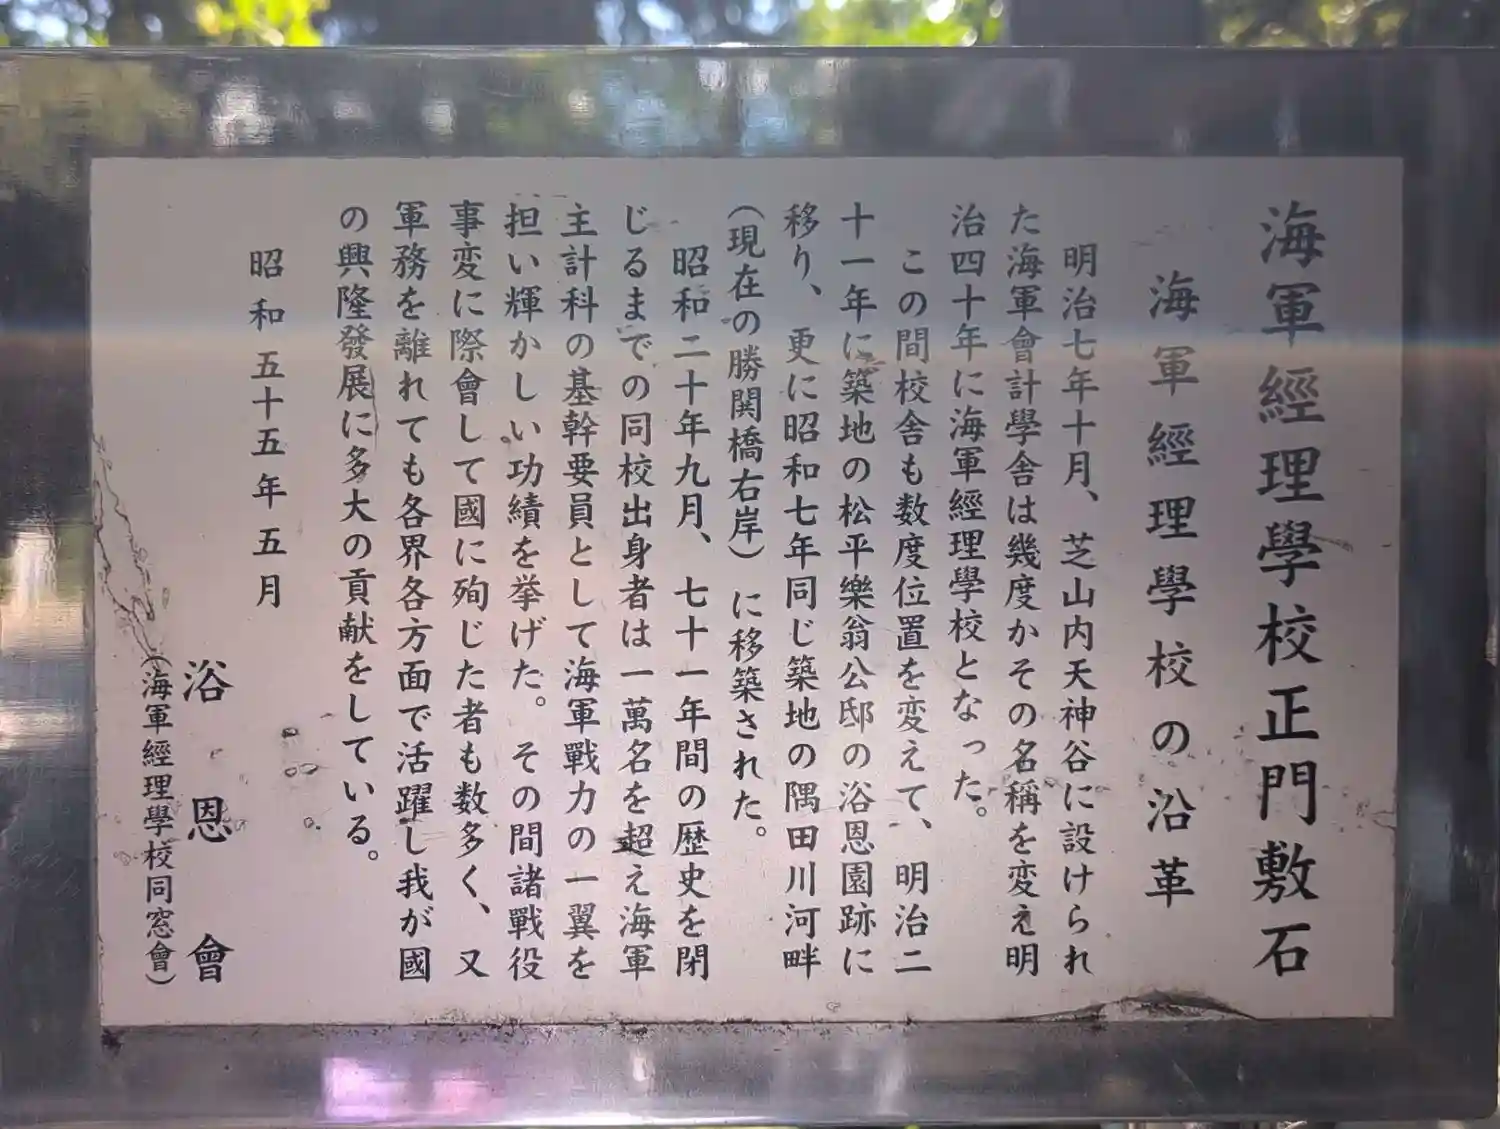 海軍經理學校正門敷石
海軍經理學校の沿革
明治七年十月、芝山内天神谷に設けられ
た海軍會計學舎は幾度かその名稱を変え明
治四十年に海軍經理學校となった。
この間校舎も数度位置を変えて、明治二
十一年に築地の松平樂翁公邸の浴恩園跡に
移り、更に昭和七年同じ築地の隅田川河畔
(現在の勝関橋右岸)に移築された。
昭和二十年九月、七十一年間の歴史を閉
じるまでの同校出身者は一萬名を超え海軍
主計科の基幹要員として海軍戰力の一翼を
担い輝かしい功績を挙げた。その間諸戰役
事変に際會して國に殉じた者も数多く、又
軍務を離れても各界各方面で活躍し我が國
の興隆發展に多大の貢献をしている。
昭和五十五年五月
浴恩會
(海軍經理學校同窓會)